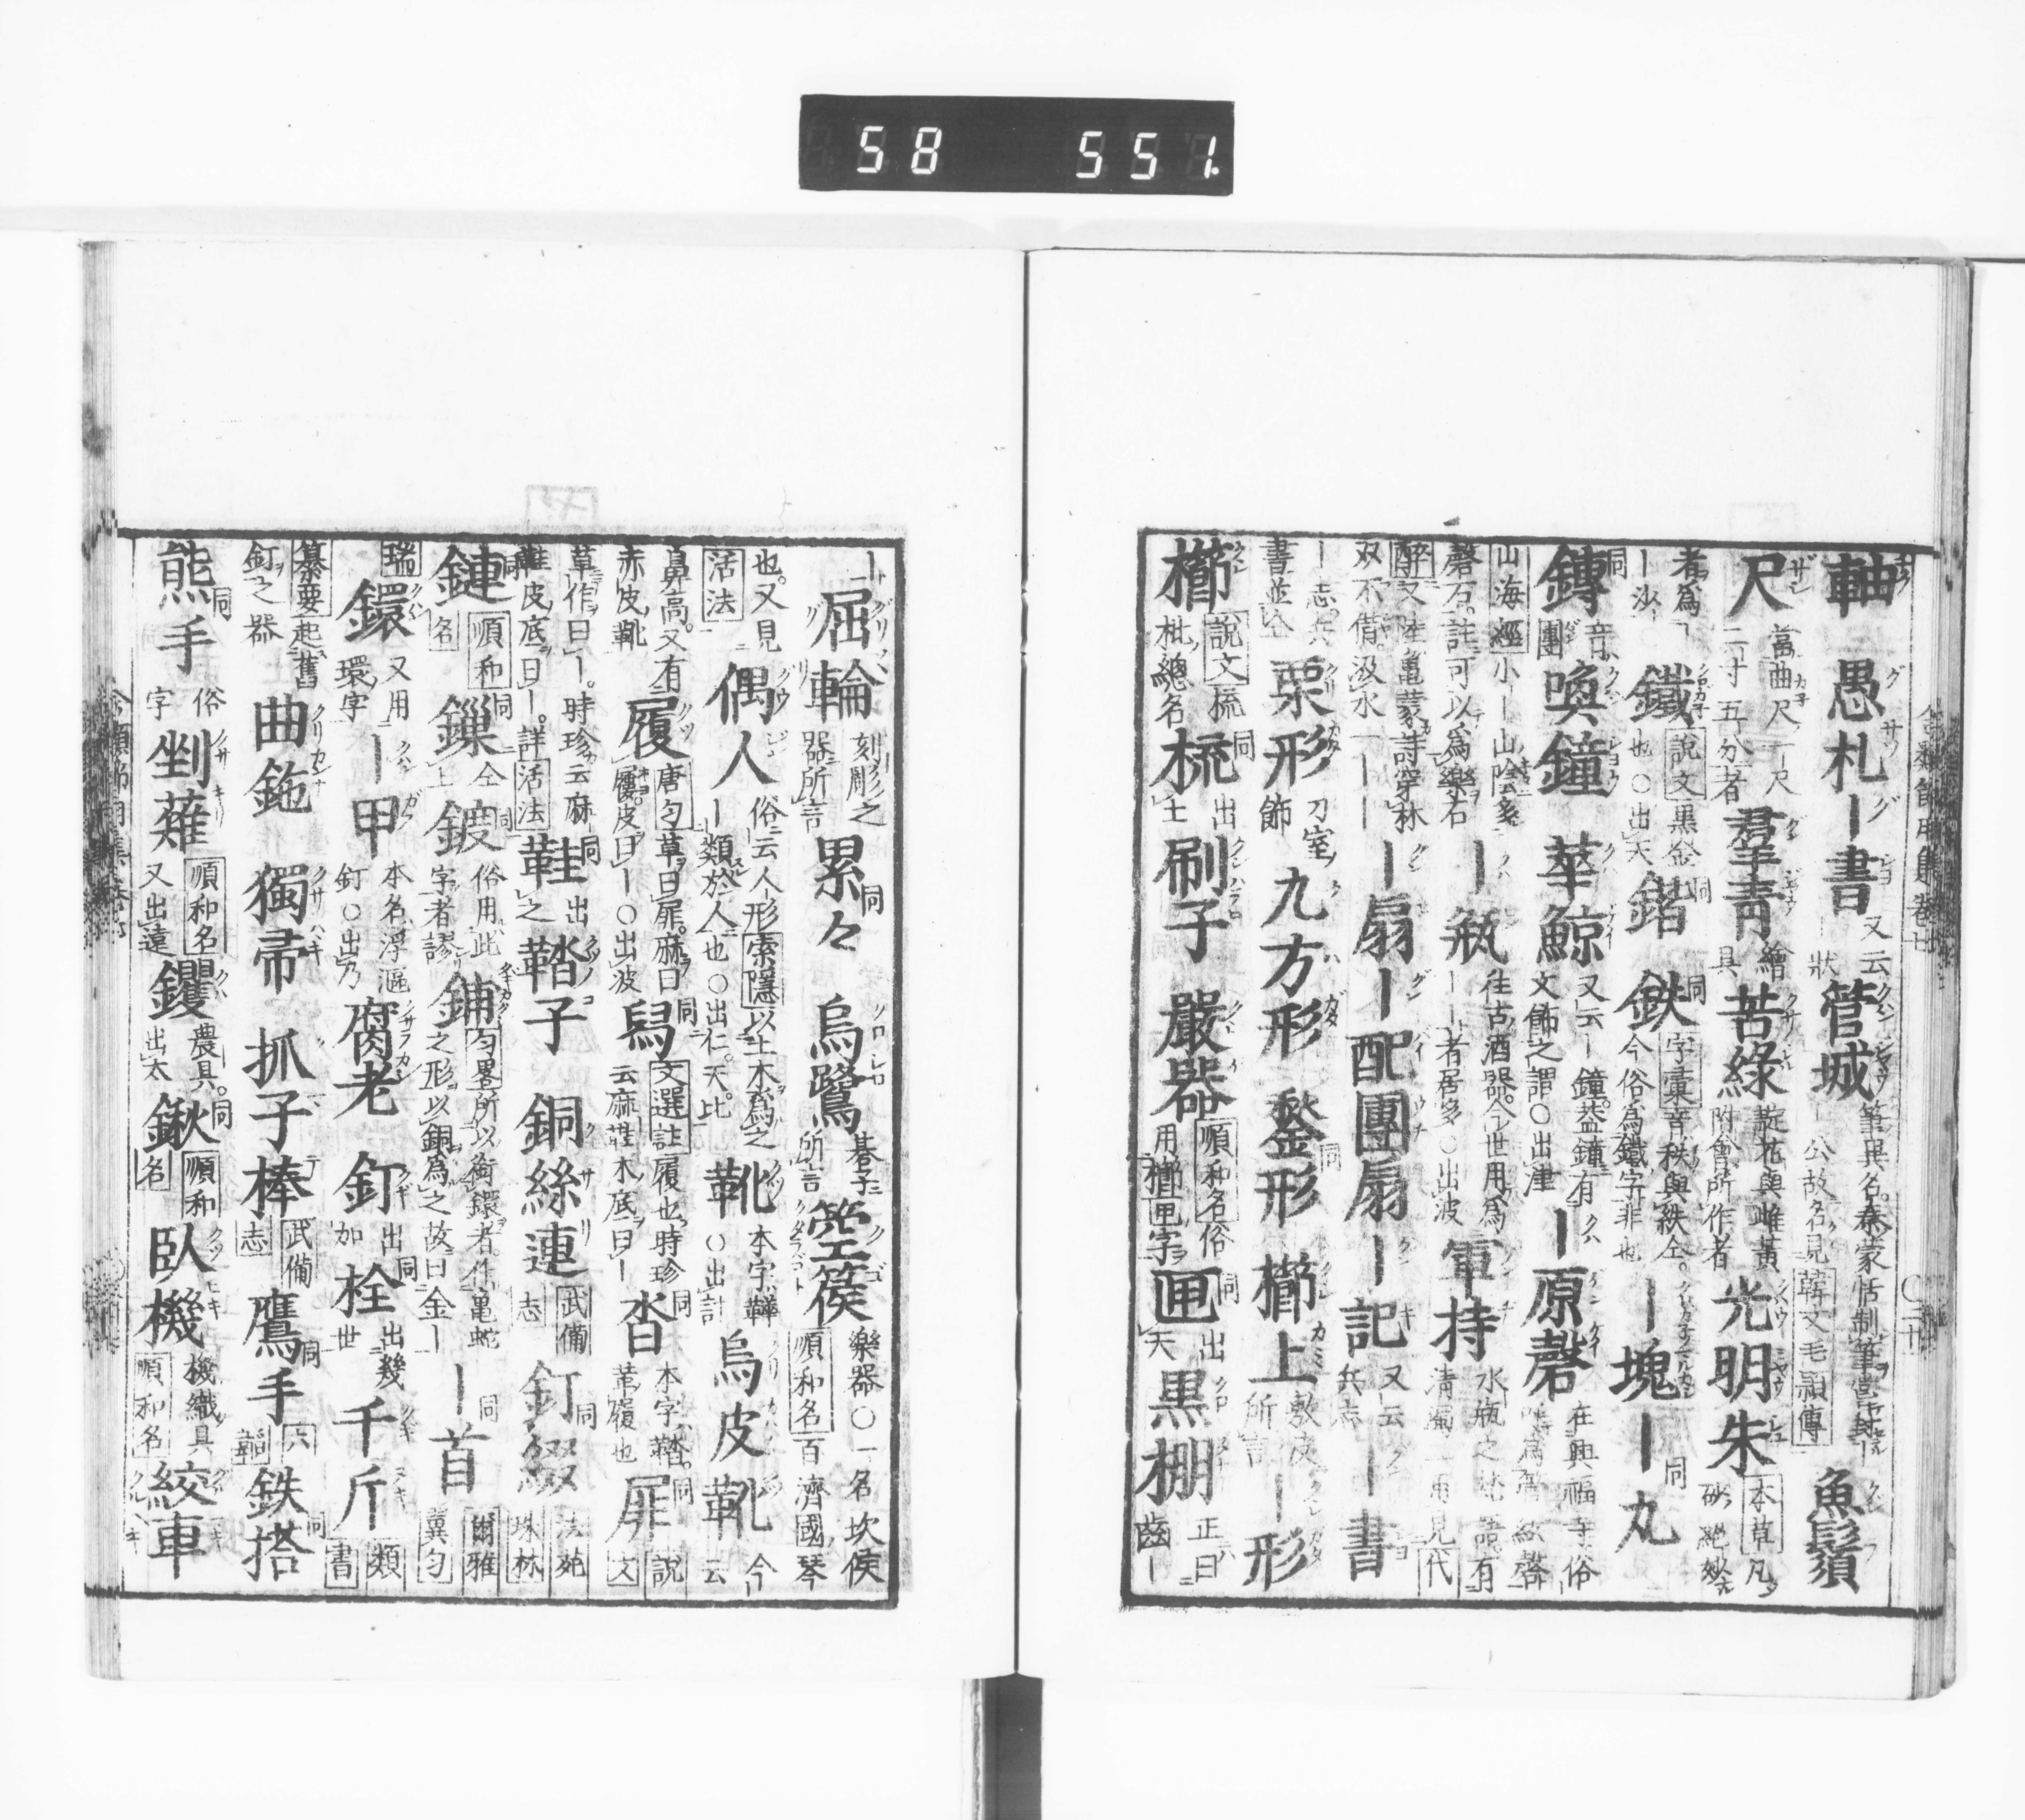 58 551
軸 愚札 ー書 又云ー狀 管城 筆異名秦蒙恬制筆當封ー公故名見韓文毛穎傳 魚鬚
尺 當曲尺ー尺二寸五分者 羣青 繪具 苦綠 靛花與雌黃附會所作者 光明朱 本草凡砂絕妙
者為ー沙 鐵 說文黑金也○出天 鍇 鉄 字彙音秩與紩仝今俗為鐵字非也 ー塊 ー丸
鏄 音團 喚鐘 華鯨 又云ー鐘葢鐘有文飾之謂○出津 ー原磬 在興福寺俗
山海經小ー山陰多磬石註可以為樂石 ー瓶 往古酒器今世用為ーー者居多○出波 軍持 水瓶之梵語有清濁二用見代
醉又陸亀蒙詩穿林双不借汲水一ーー ー扇 ー配團扇 ー記 又云ー兵志 ー書
ー志兵書並仝 栗形 刀室飾 九方形 鍪形 櫛上 敷皮所言 ー形
櫛 說文梳枇總名 梳 出土 刷子 嚴器 順和名俗用櫛匣字 匣 出天 黒棚 正曰齒ー
ー屈輪 刻彫之器所言 累々 烏鷺 碁子所言 箜篌 樂器○一名坎侯順和名百濟國琴
也又見活法 偶人 俗云人形索隱以土木為之ー類於人也○出仁天比 靴 本字鞾○出計 烏皮靴 今云
鼻高又有赤皮靴 履 唐匀草曰屝麻曰屨皮曰ー○出波 舄 文選註履也時珍云麻鞋木底曰ー 沓 本字鞜革履也 屝 說文
草作曰ー時珍云麻鞋皮底曰ー詳活法 鞋 出之 鞜子 銅絲連 武備志 釘綴 法苑珠林
鏈 順和名 鏁 仝上 鍍 俗用此字者謬 鋪 匀畧所以銜鐶者作亀蛇之形以銅為之故曰金ー ー首 爾雅冀匀
瑞 鐶 又用環字 ー甲 本名浮漚釘○出乃 腐老 釘 出加 栓 出幾世 千斤 類書
纂要起舊釘之器 曲鉇 獨帚 抓子棒 武備志 鷹手 六韜 鉄搭
熊手 俗字 剉薙 順和名又出遠 钁 農具出太 鍬 順和名 臥機 機織具順和名 絞車